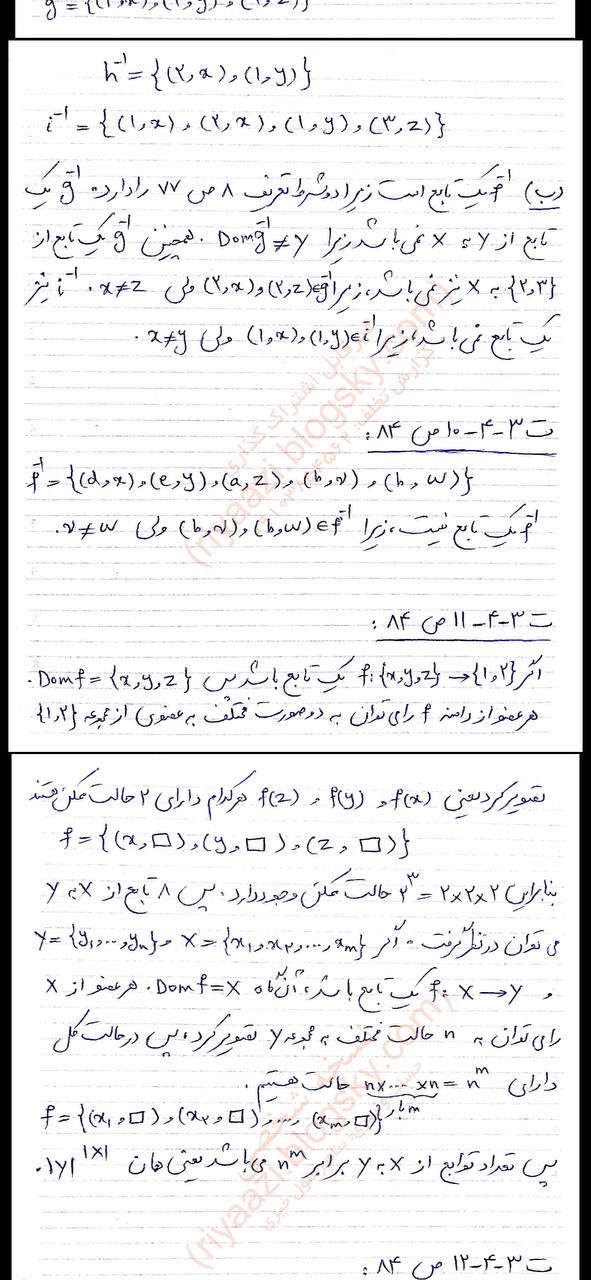 h⁻¹ = {(۲,x), (۱,y)}
i⁻¹ = {(۱,x), (۲,x), (۱,y), (۳,z)}
(ب) f⁻¹ یک تابع است زیرا دو شرط تعریف ۸ ص ۷۷ را دارد. g⁻¹ یک
تابع از Y به X نمی باشد زیرا Dom g⁻¹ ≠ Y. همچنین g⁻¹ یک تابع از
{۲,۳} به X نیز نمی باشد، زیرا (۲,x) و (۲,z) ∈ g⁻¹ ولی x≠z. i⁻¹ نیز
یک تابع نمی باشد، زیرا (۱,x), (۱,y) ∈ i⁻¹ ولی x≠y.
ت ۳-۴-۱۰ ص ۸۴:
f⁻¹ = {(d,x), (e,y), (a,z), (b,v), (b,w)}
f⁻¹ یک تابع نیست، زیرا (b,v), (b,w) ∈ f⁻¹ ولی v≠w.
ت ۳-۴-۱۱ ص ۸۴:
اگر f: {x,y,z} → {۱,۲} یک تابع باشد پس Dom f = {x,y,z}.
هر عضو از دامنه f را می توان به دو صورت مختلف به عضوی از مجموعه {۱,۲}
تصویر کرد یعنی f(x) و f(y) و f(z) هر کدام دارای ۲ حالت ممکن هستند
f = {(x,□), (y,□), (z,□)}
بنابراین ۲×۲×۲ = ۲³ حالت ممکن وجود دارد. پس ۸ تابع از X به Y
می توان در نظر گرفت. اگر X = {x₁,x₂,…,xₘ} و Y = {y₁,…,yₙ}
و f: X → Y یک تابع باشد، آن گاه Dom f = X. هر عضو از X
را می توان به n حالت مختلف به مجموعه Y تصویر کرد، پس در حالت کل
دارای n×…×n = nᵐ حالت هستیم.
m بار
f = {(x₁,□), (x₂,□), …, (xₘ,□)}
پس تعداد توابع از X به Y برابر nᵐ می باشد یعنی همان |Y|^|X|.
ت ۳-۴-۱۲ ص ۸۴:
(riyaazi.blogsky.com)
(riyaazi.blogsky.com)